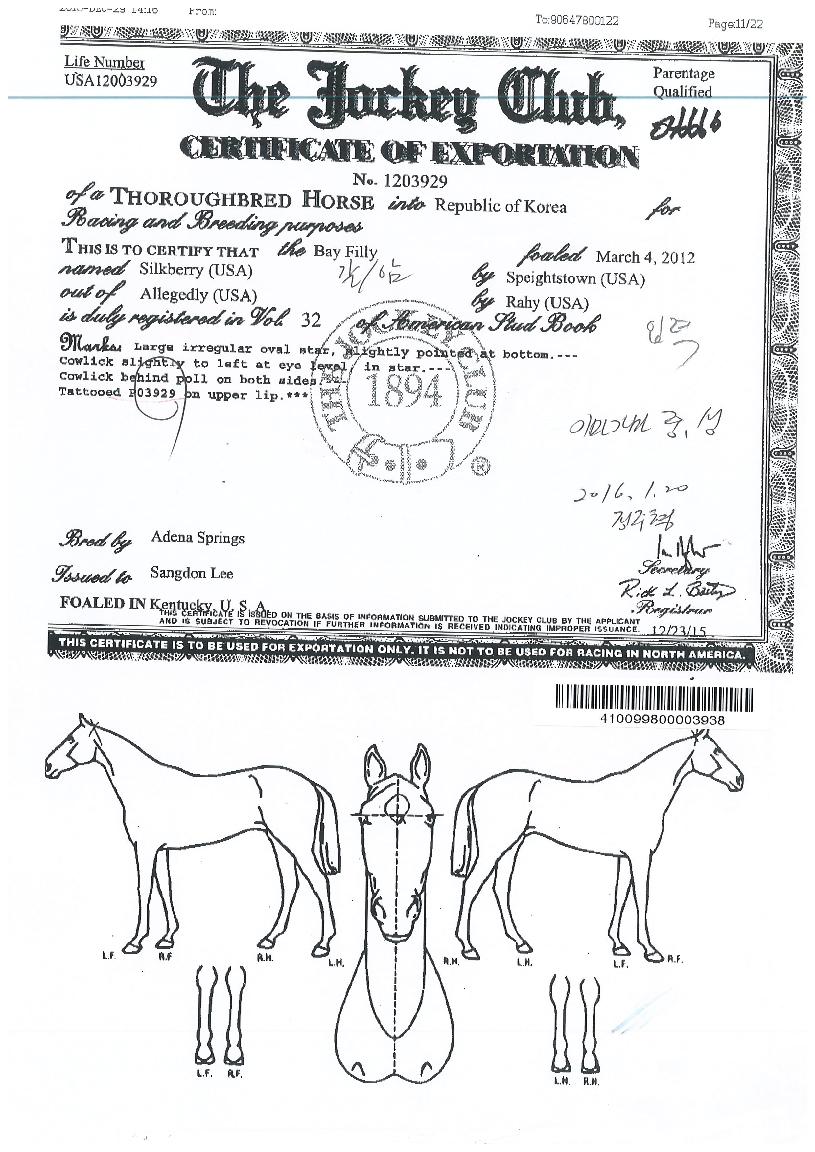 To:90647800122
Page:11/22
Life Number
USA12003929
The Jockey Club,
Parentage
Qualified
CERTIFICATE OF EXPORTATION
No. 1203929
of a THOROUGHBRED HORSE into Republic of Korea for
Racing and Breeding purposes
THIS IS TO CERTIFY THAT the Bay Filly foaled March 4, 2012
named Silkberry (USA) by Speightstown (USA)
out of Allegedly (USA) by Rahy (USA)
is duly registered in Vol. 32 of American Stud Book
Marks: Large irregular oval star, slightly pointed at bottom.---
Cowlick slightly to left at eye level in star.----
Cowlick behind poll on both sides.
Tattooed P03929 on upper lip.***
THE JOCKEY CLUB
1894
®
2016. 1. 20
Bred by Adena Springs
Issued to Sangdon Lee
Secretary
Registrar
FOALED IN Kentucky, U. S. A.
THIS CERTIFICATE IS ISSUED ON THE BASIS OF INFORMATION SUBMITTED TO THE JOCKEY CLUB BY THE APPLICANT
AND IS SUBJECT TO REVOCATION IF FURTHER INFORMATION IS RECEIVED INDICATING IMPROPER ISSUANCE.
12/23/15
THIS CERTIFICATE IS TO BE USED FOR EXPORTATION ONLY. IT IS NOT TO BE USED FOR RACING IN NORTH AMERICA.
410099800003938
L.F. R.F R.H. L.H. R.H. L.H. L.F. R.F.
L.F. R.F. L.H. R.H.